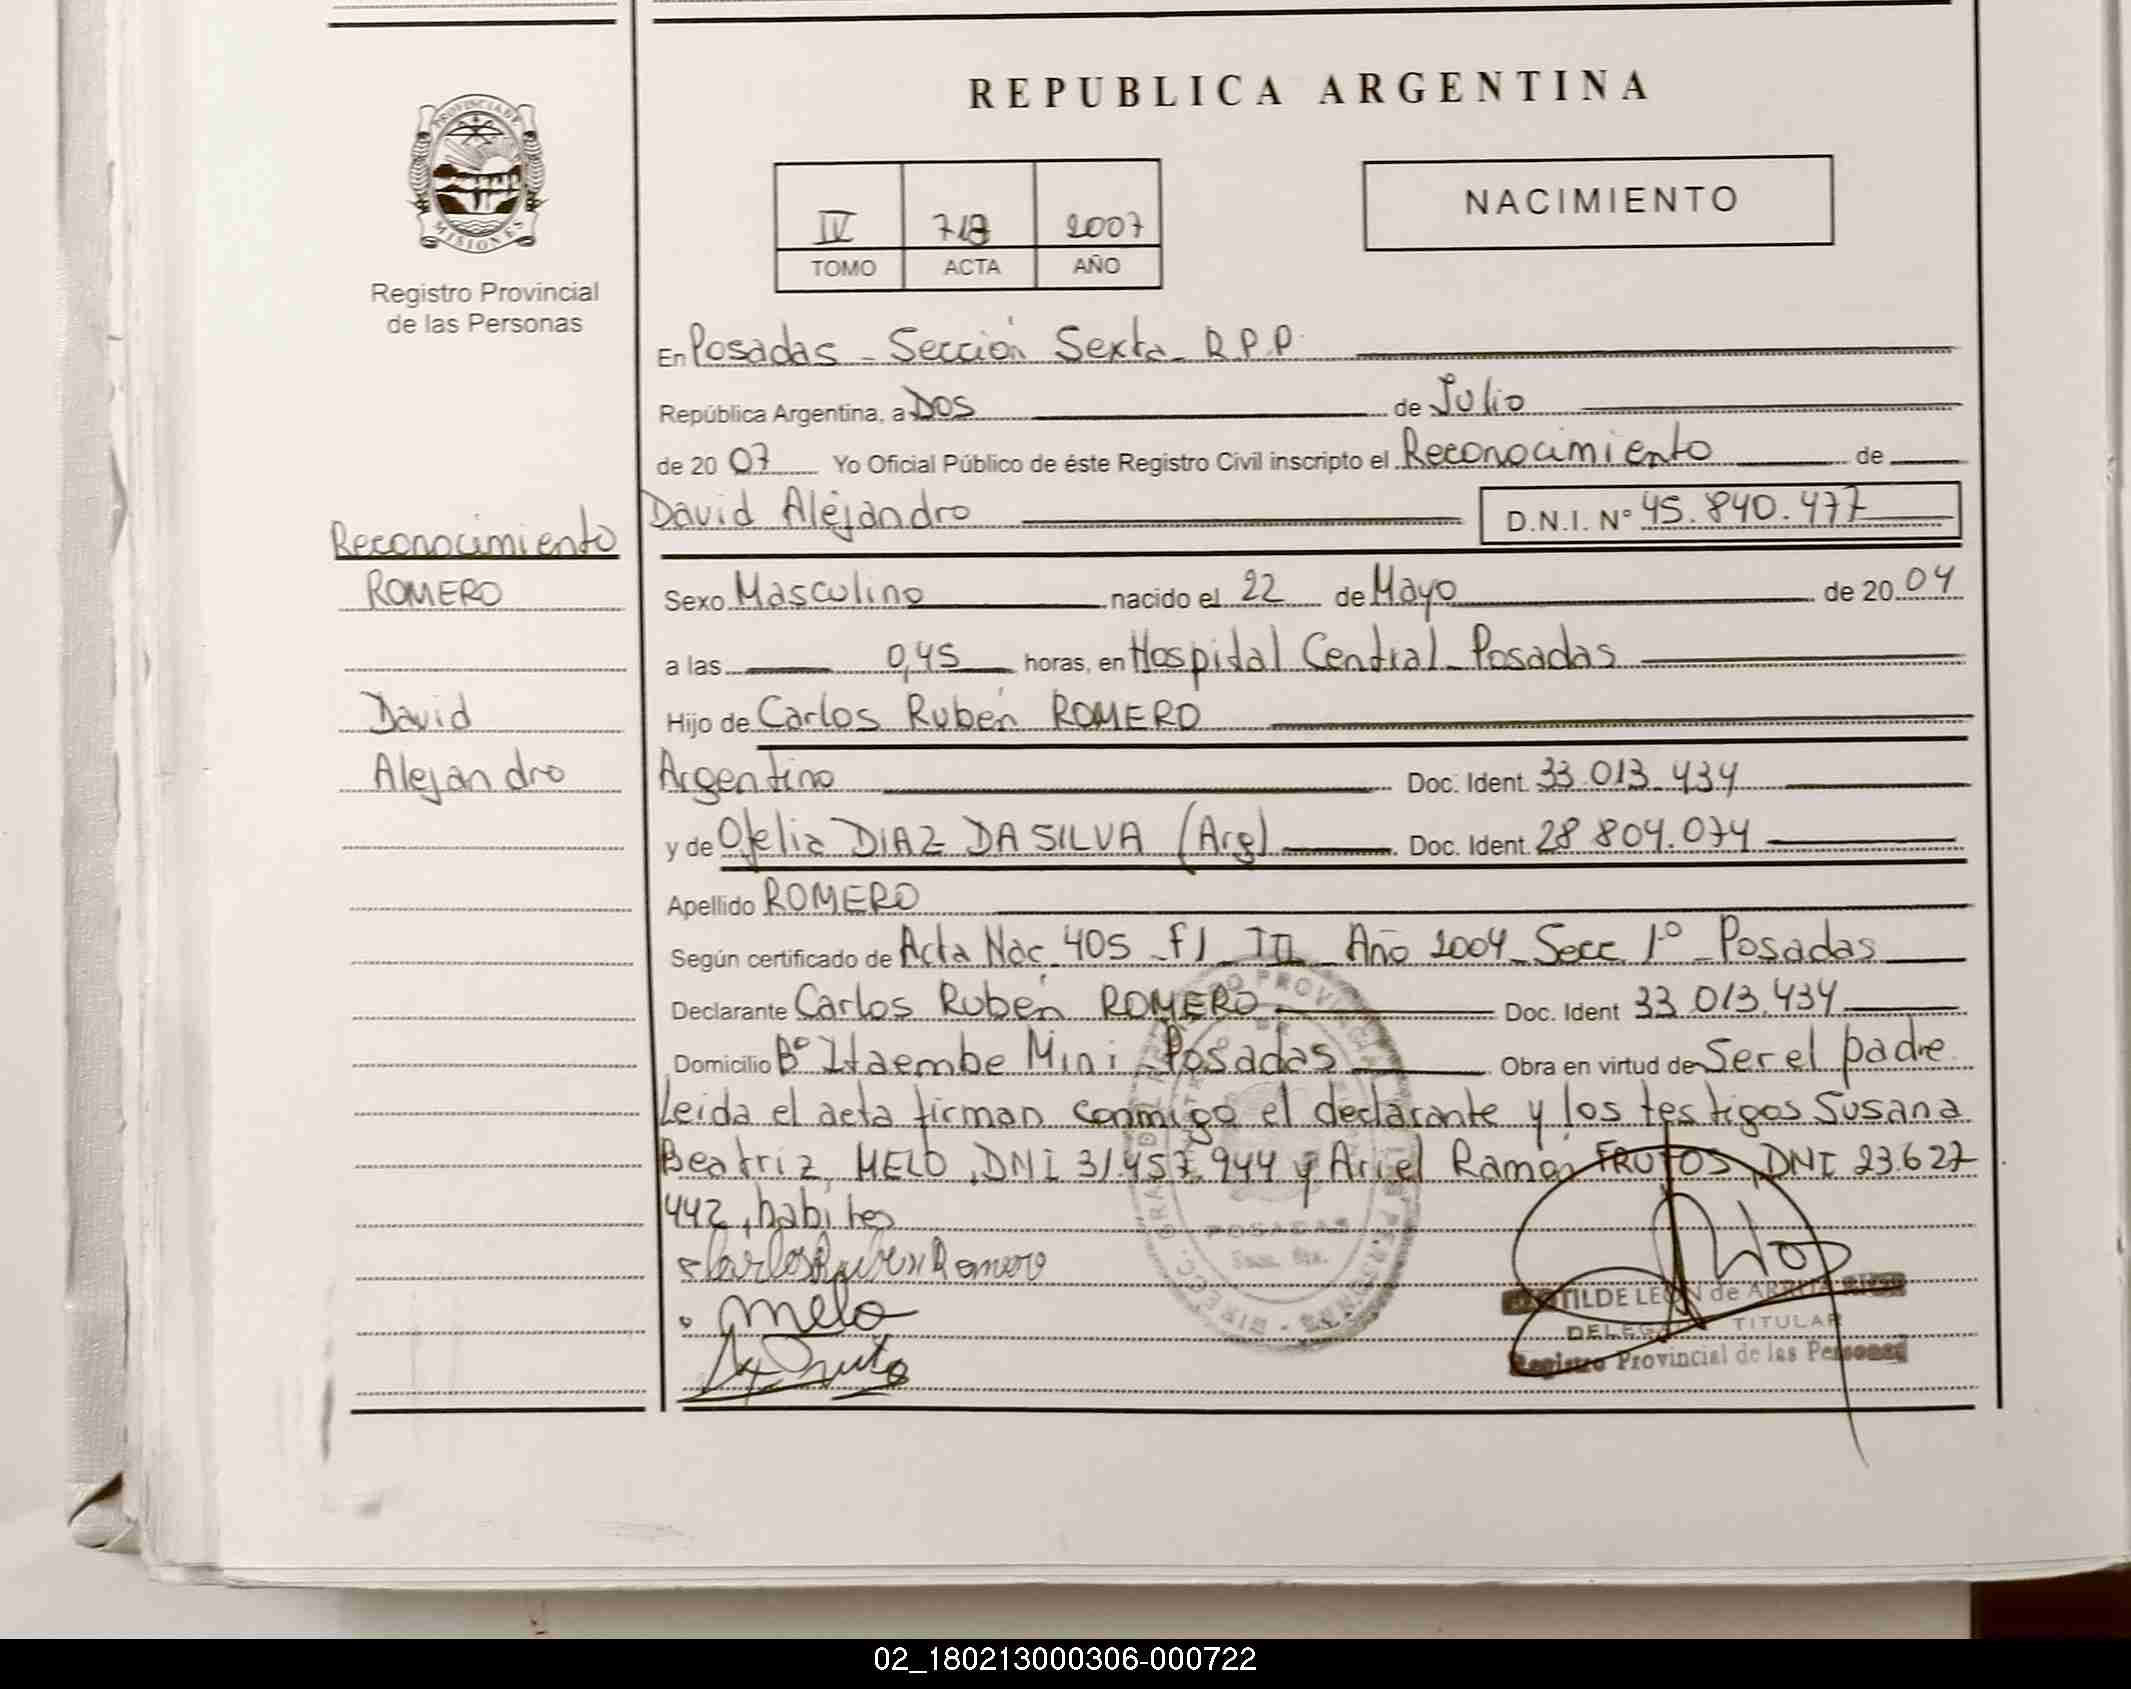 REPUBLICA ARGENTINA
PROVINCIA DE
MISIONES
Registro Provincial
de las Personas
IV 2007
TOMO ACTA AÑO
NACIMIENTO
En Posadas - Sección Sexta - R.P.P.
República Argentina, a Dos de Julio
de 20 07 Yo Oficial Público de éste Registro Civil inscripto el Reconocimiento de
David Alejandro D.N.I. Nº 45.840.477
Reconocimiento
ROMERO
David
Alejandro
Sexo Masculino nacido el 22 de Mayo de 20 04
a las 0,45 horas, en Hospital Central Posadas
Hijo de Carlos Rubén ROMERO
Argentino Doc. Ident. 33.013.434
y de Ofelia DIAZ DA SILVA (Arg) Doc. Ident. 28.804.074
Apellido ROMERO
Según certificado de Acta Nac 405 - fl - III - Año 2004 - Secc 1º - Posadas
Declarante Carlos Rubén ROMERO Doc. Ident 33.013.434
Domicilio Bº Itaembe Mini - Posadas Obra en virtud de Ser el padre
Leida el acta firman conmigo el declarante y los testigos Susana
Beatriz MELO, DNI 31.457.944 y Ariel Ramón FRUTOS, DNI 23.627
442, habiles
Carlos Ruben Romero
Melo
POSADAS
Secc. 6ta.
TILDE LEON de
DELEGADA TITULAR
Registro Provincial de las Personas
02_180213000306-000722